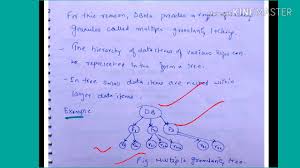 For this reason, DBMS provides a range of locking
granules called multiple granularity locking.
- The hierarchy of data items of various sizes can
be represented in the form a tree.
- In tree small data items are nested within
larger data items.
Example:
DB
Fig. multiple granularity tree.